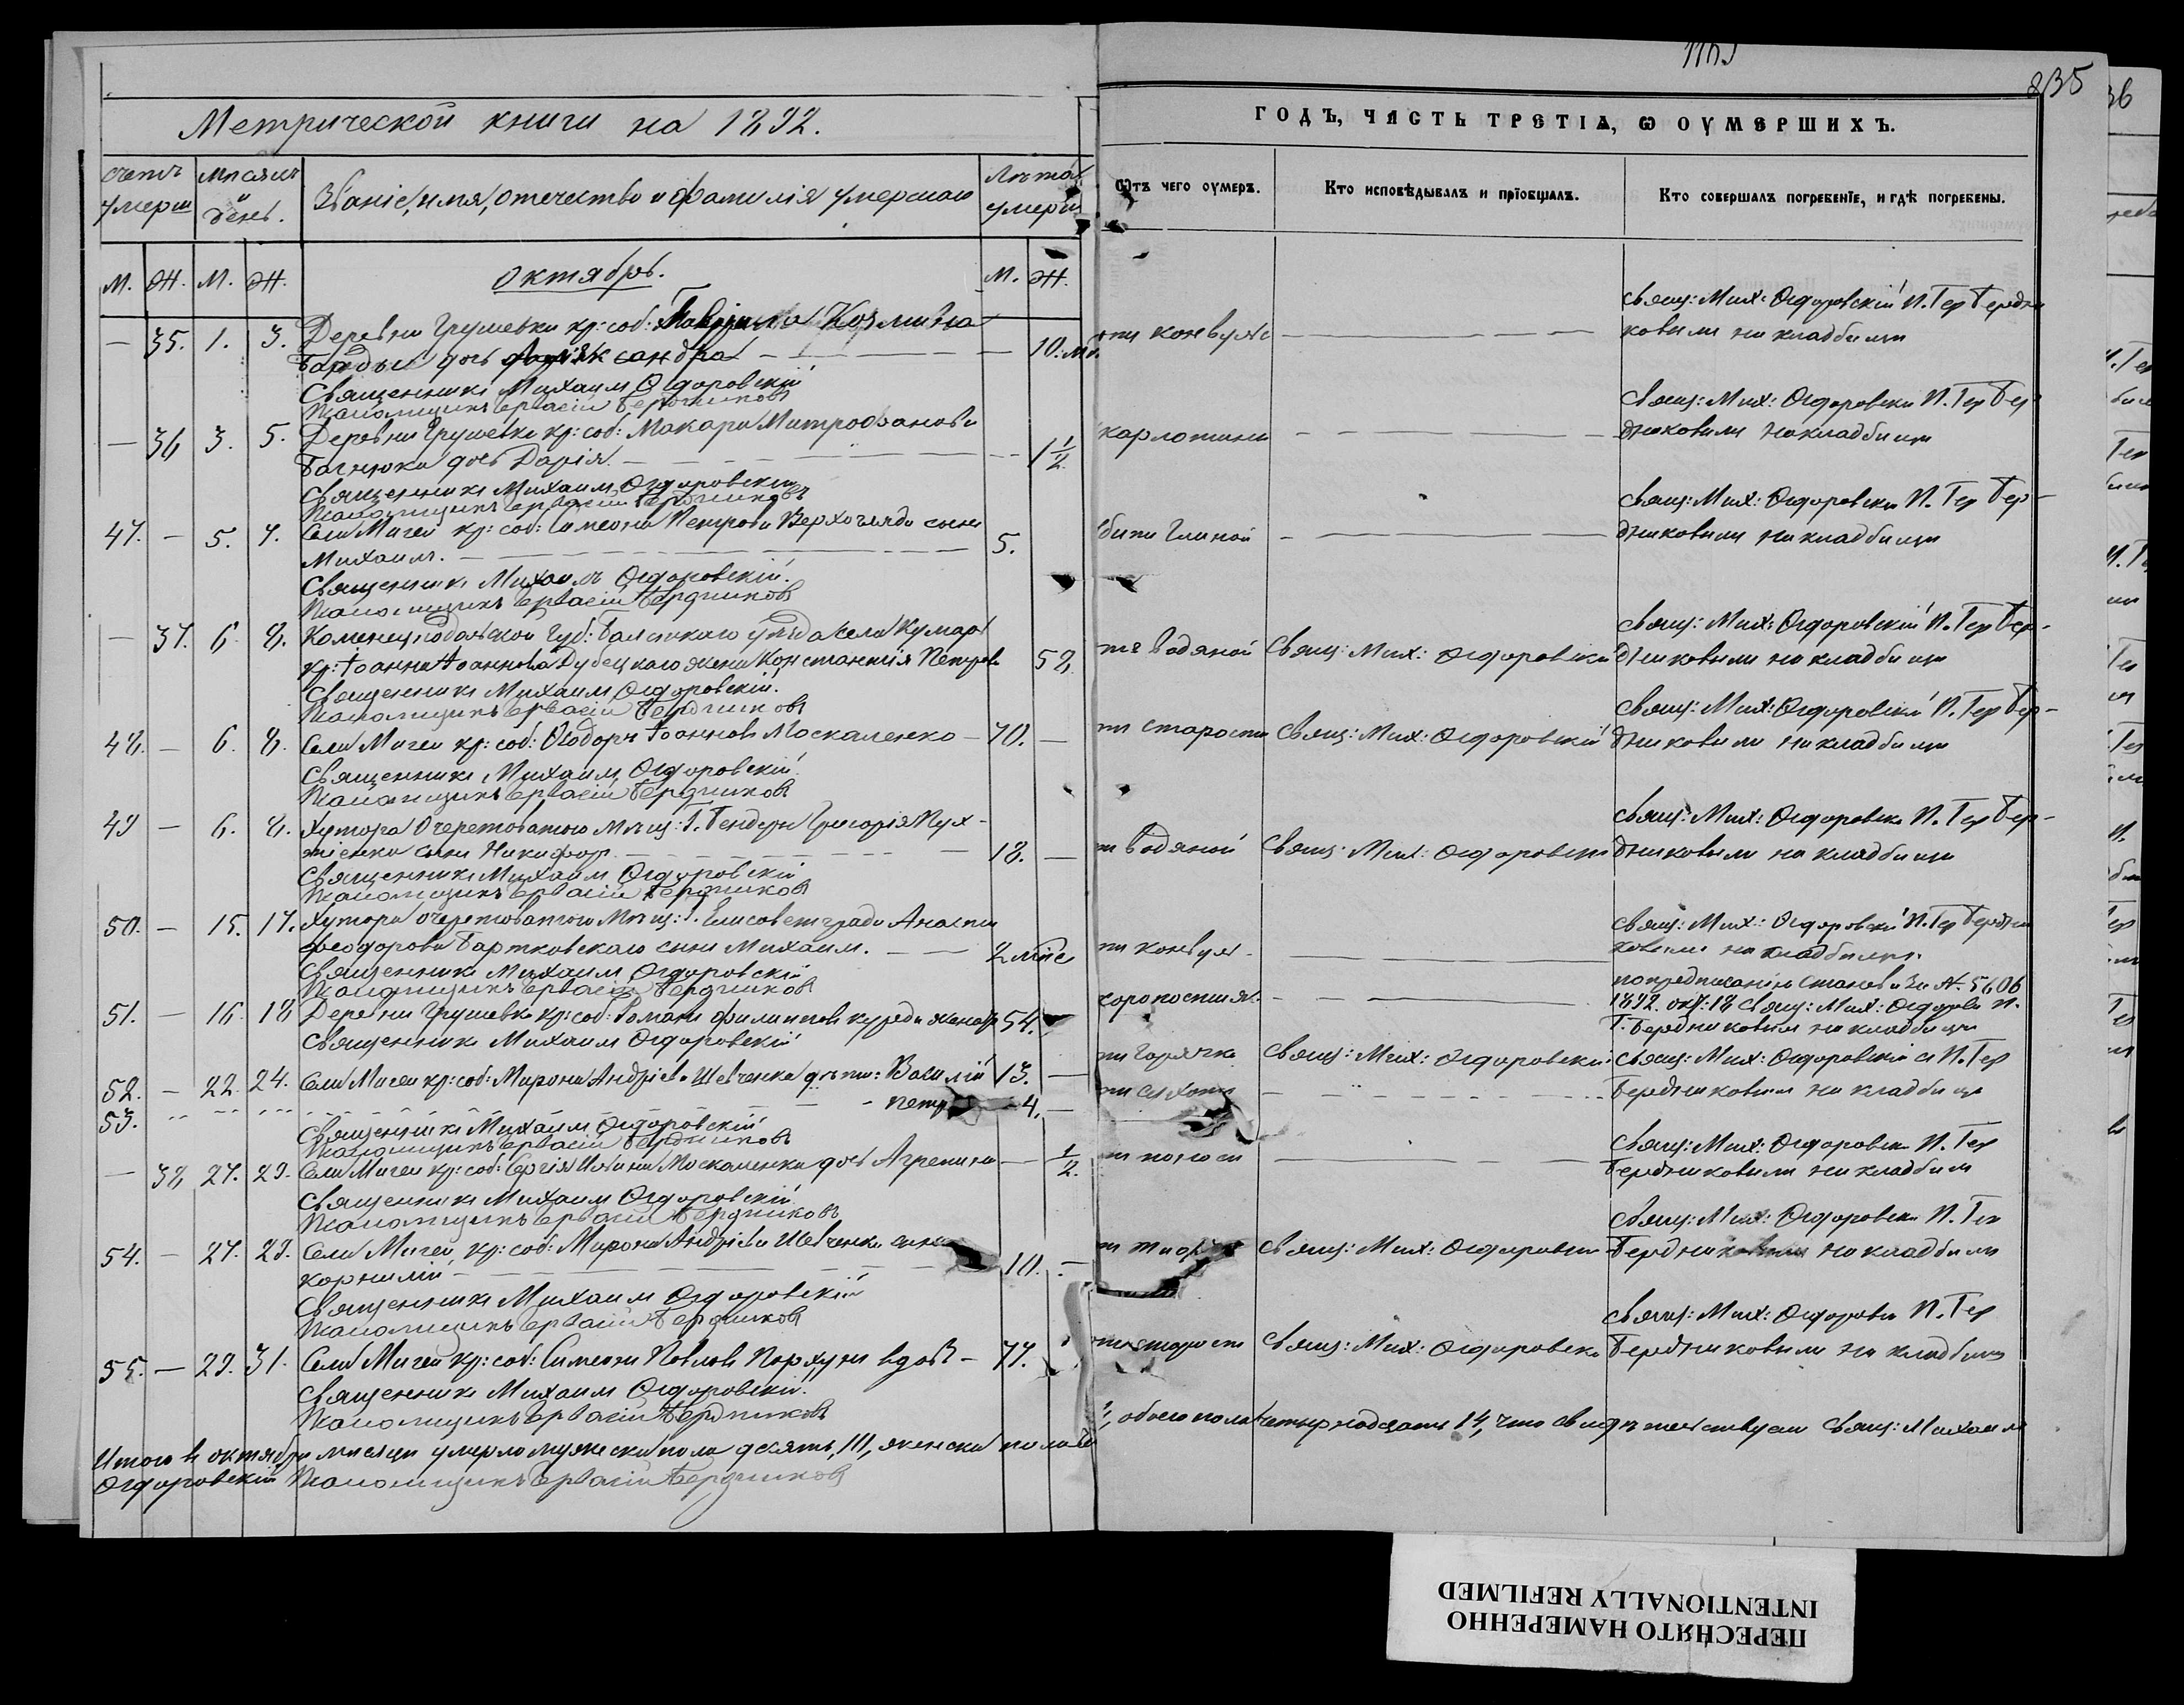 235
Метрической книги на 1892.
ГОДЪ, ЧАСТЬ ТРЕТІА, Ѡ ОУМЕРШИХЪ.
счетъ умерш
мѣсяцъ и день.
Званіе, имя, отечество и фамилія умершаго
Лѣта умерш
Ѿтъ чего оумеръ.
Кто исповѣдывалъ и прїобщалъ.
Кто совершалъ погребенїе, и гдѣ погребены.
М. Ж. М. Ж. Октябрь. М. Ж.
— 35. 1. 3. Деревни Грушевки кр: соб: Козмина
дочь — 10. мѣ.
Священникъ Михаилъ Ѳедоровскій
Псаломщикъ Гервасій Бердниковъ
свящ: Мих: Ѳедоровскій П. Гер Бердни
ковымъ на кладбищи
— 36 3. 5. Деревни Грушевки кр: соб: Макарія Митрофанова
дочь Дарія. — 1 1/2
Священникъ Михаилъ Ѳедоровскій
Псаломщикъ Гервасій Бердниковъ
скарлотини
свящ: Мих: Ѳедоровски П. Гер Бер-
дниковымъ на кладбищи
47. — 5. 7. Села Мигеи кр: соб: Симеона Петрова Верхогляда сынъ
Михаилъ. — 5.
Священникъ Михаилъ Ѳедоровскій.
Псаломщикъ Гервасій Бердниковъ
убитъ Глиной
свящ: Мих: Ѳедоровски П. Гер Бер-
дниковымъ на кладбищи
— 37. 6. 8. Каменецподольской Губ: Балтскаго уѣзда села
кр: Іоанна Іоаннова Дубецкаго жена Константія Петрова 58
Священникъ Михаилъ Ѳедоровскій.
Псаломщикъ Гервасій Бердниковъ
водяной Свящ: Мих: Ѳедоровски
свящ: Мих: Ѳедоровскій П. Гер Бер-
дниковымъ на кладбищи
48. — 6. 8. Села Мигеи кр: соб: Ѳеодоръ Іоанновъ Москаленко — 70. —
Священникъ Михаилъ Ѳедоровскій
Псаломщикъ Гервасій Бердниковъ
старости Свящ: Мих: Ѳедоровскій
свящ: Мих: Ѳедоровскій П. Гер Бер-
дниковымъ на кладбищи
49 — 6. 8. Хутора Очеретоватого мѣщ: Г. Бендеръ Григорія
сынъ Никифоръ — 18. —
Священникъ Михаилъ Ѳедоровскій
Псаломщикъ Гервасій Бердниковъ
водяной Свящ: Мих: Ѳедоровски
свящ: Мих: Ѳедоровски П. Гер Бер-
дниковымъ на кладбищи
50. — 15. 17. Хутора очеретоватого мѣщ: Г. Елисаветграда
Феодорова Бартковскаго сынъ Михаилъ. —
Священникъ Михаилъ Ѳедоровскій
Псаломщикъ Гервасій Бердниковъ
свящ: Мих: Ѳедоровскій П. Гер Бердни
ковымъ на кладбищи
51. — 16. 18 Деревни Грушевки кр: соб: Романъ Филиповъ 54.
Священникъ Михаилъ Ѳедоровскій
скоропостиж.
по предписанію
1892. окт: 18 свящ: Мих: Ѳедоровс П.
Г. Бердниковымъ на кладбищи
52. — 22. 24. Села Мигеи кр: соб: Мирона Андріева Шевченка дѣти: Василій 13. —
53. Петръ 4. —
Священникъ Михаилъ Ѳедоровскій
Псаломщикъ Гервасій Бердниковъ
горячки Свящ: Мих: Ѳедоровски
свящ: Мих: Ѳедоровскій и П. Гер
Бердниковымъ на кладбищи
— 38 27. 29. Села Мигеи кр: соб: Сергія Москаленка дочь Агрепина — 1/2.
Священникъ Михаилъ Ѳедоровскій
Псаломщикъ Гервасій Бердниковъ
поноси
Свящ: Мих: Ѳедоровски П. Гер
Бердниковымъ на кладбищи
54. — 27. 29. Села Мигеи, кр: соб: Мирона Андріева Шевченка сынъ
Корнилій — 10. —
Священникъ Михаилъ Ѳедоровскій
Псаломщикъ Гервасій Бердниковъ
Свящ: Мих: Ѳедоровски
Свящ: Мих: Ѳедоровски П. Гер
Бердниковымъ на кладбищи
55. — 29. 31. Села Мигеи кр: соб: Симеонъ Павловъ вдовъ — 77.
Священникъ Михаилъ Ѳедоровскій.
Псаломщикъ Гервасій Бердниковъ
старости Свящ: Мих: Ѳедоровски
свящ: Мих: Ѳедоровски П. Гер
Бердниковымъ на кладбищи
Итого в октябрѣ мѣсяцѣ умерло мужеска пола десять, женска пола
обоего пола четырнадцать 14, что свидѣтельствуетъ Свящ: Михаилъ
Ѳедоровскій Псаломщикъ Гервасій Бердниковъ
ПЕРЕСНЯТО НАМЕРЕННО
INTENTIONALLY REFILMED